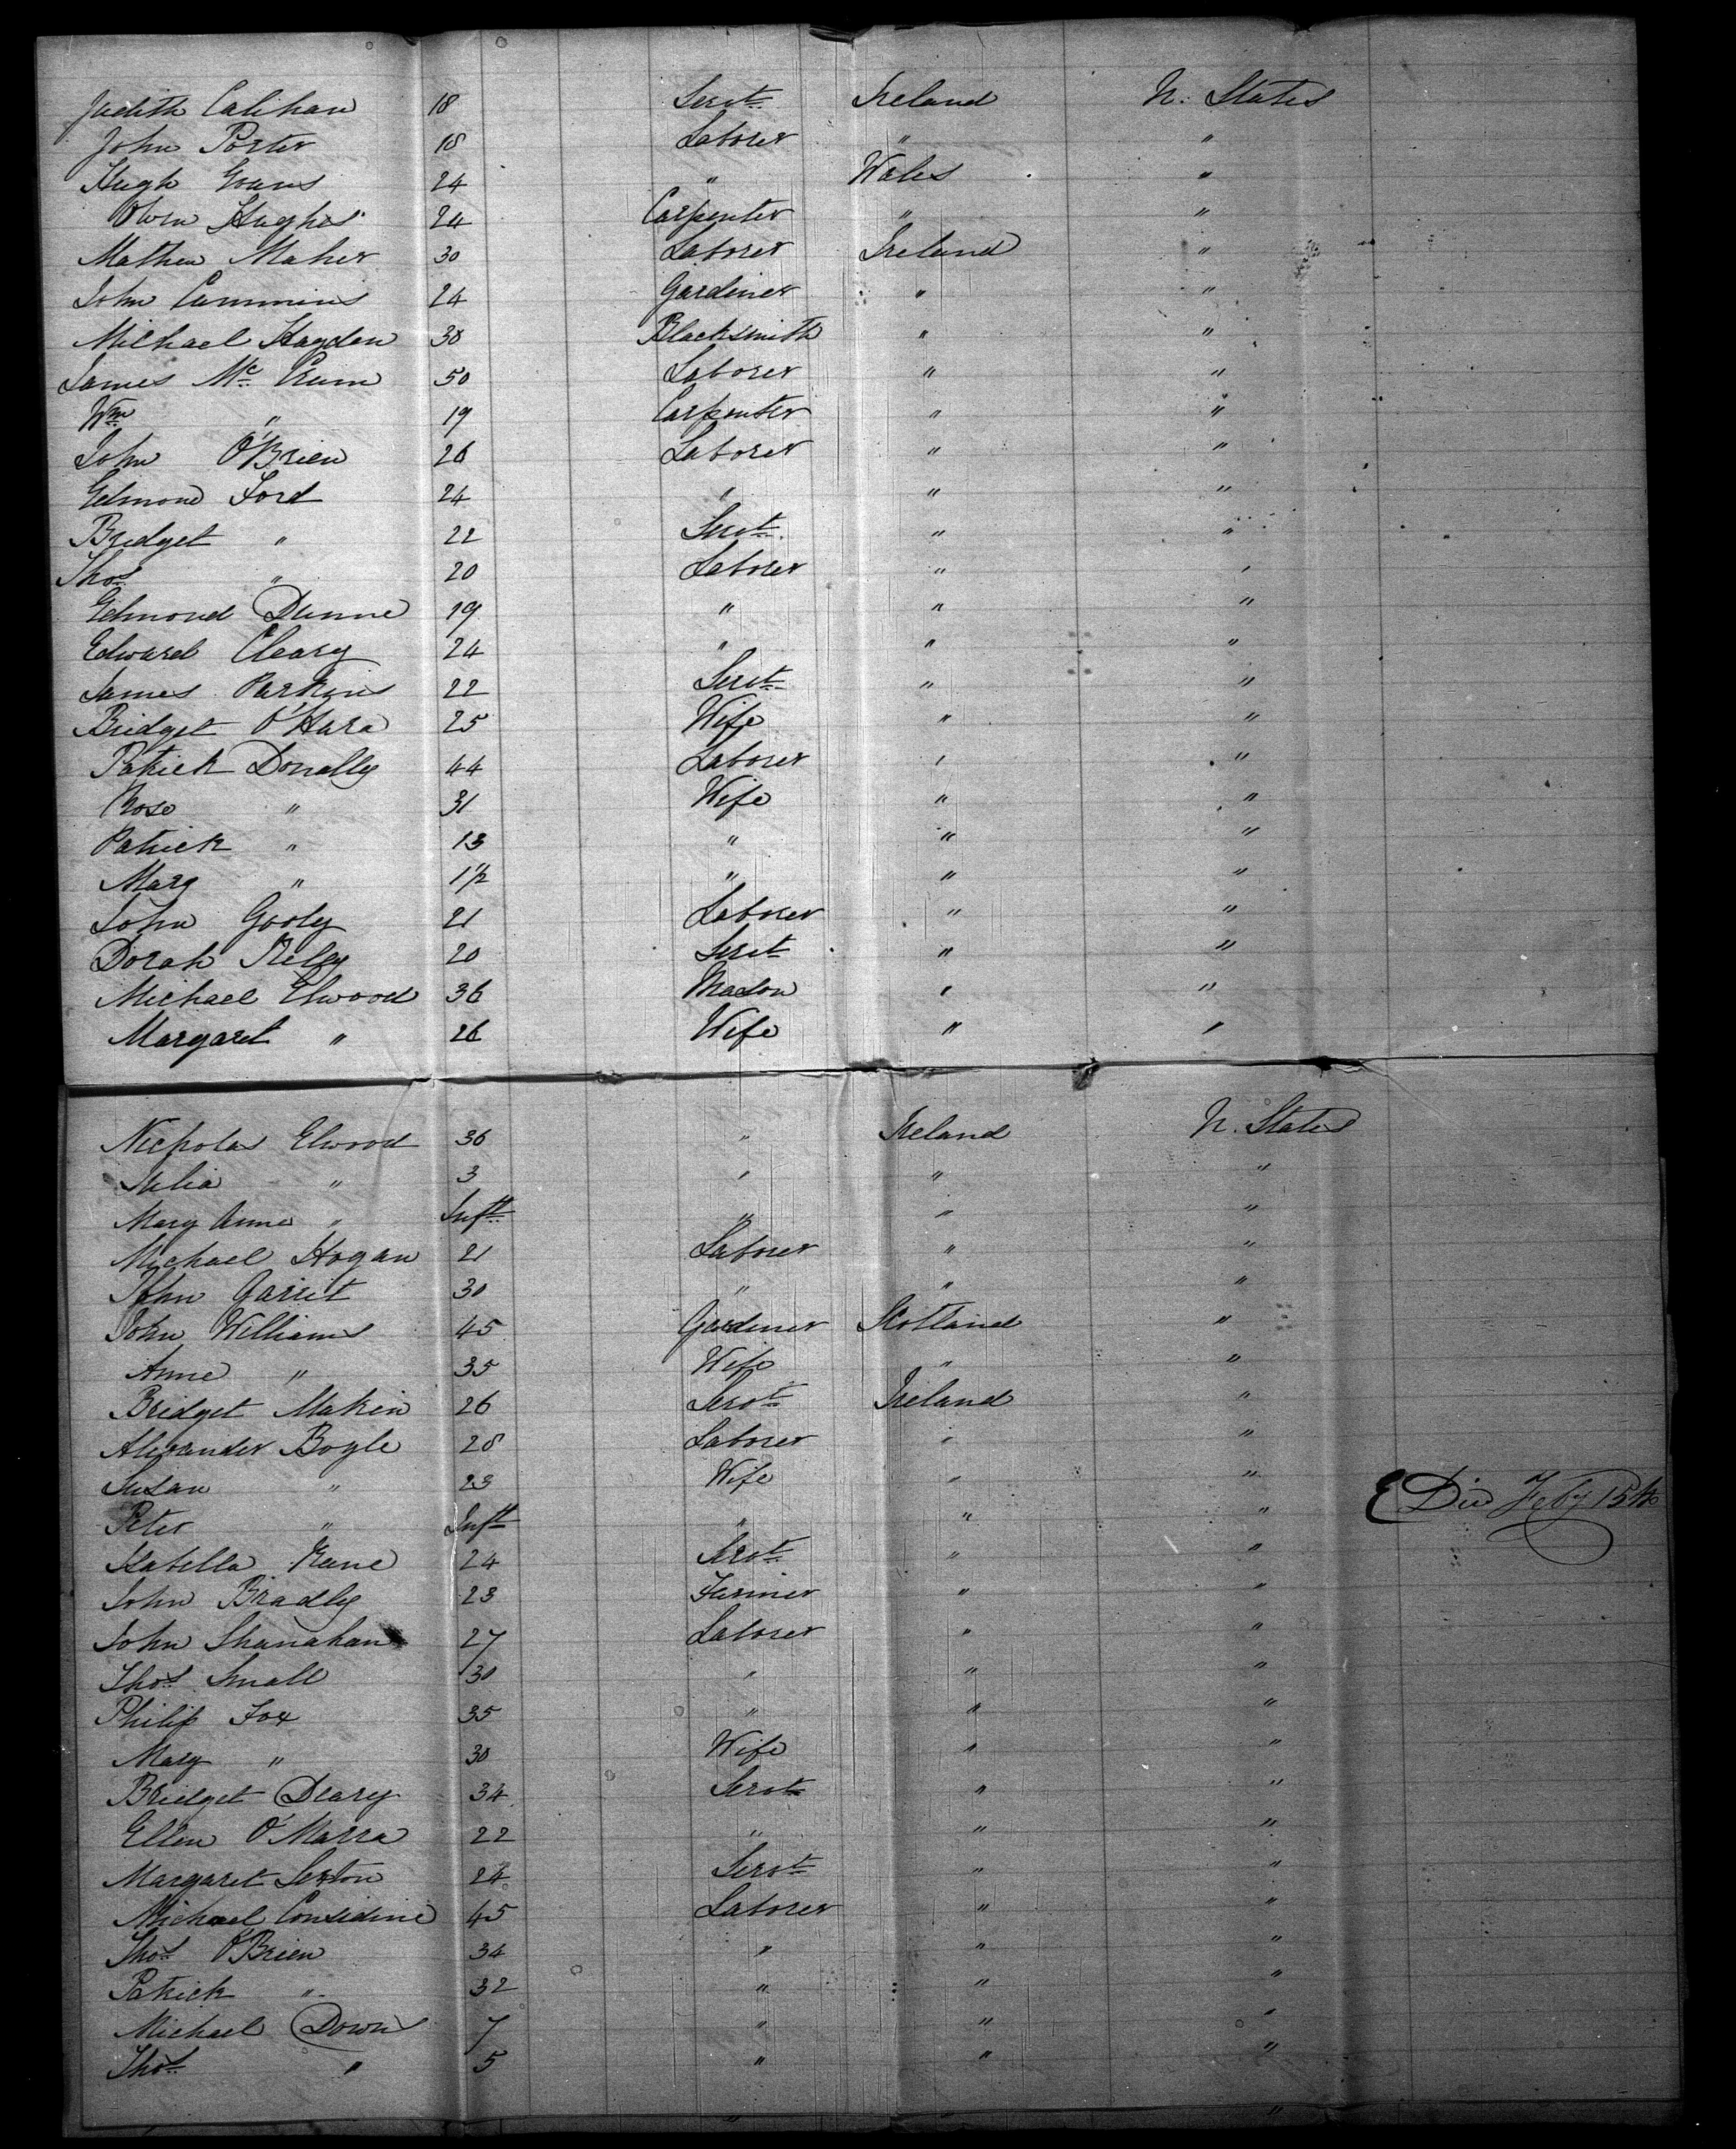 Judith Calihan 18 Servt. Ireland U. States
John Porter 18 Laborer " "
Hugh Evans 24 " Wales "
Owen Hughes 24 Carpenter " "
Mathew Maher 30 Laborer Ireland "
John Cummins 24 Gardiner " "
Michael Hayden 30 Blacksmith " "
James Mc Crum 50 Laborer " "
Wm " 19 Carpenter " "
John O'Brien 26 Laborer " "
Edmond Ford 24 " " "
Bridget " 22 Servt. " "
Thos " 20 Laborer " "
Edmond Dunne 19 " " "
Edward Cleary 24 " " "
James Parkins 22 Servt " "
Bridget O'Hara 25 Wife " "
Patrick Donelly 44 Laborer " "
Rose " 31 Wife " "
Patrick " 13 " " "
Mary " 1 1/2 " " "
John Gooly 21 Laborer " "
Dorah Kelly 20 Servt " "
Michael Elwood 36 Mason " "
Margaret " 26 Wife " "
Nicholas Elwood 36 " Ireland U. States
Julia " 3 " " "
Mary Anne " Inft " " "
Michael Hogan 21 Laborer " "
John Garrit 30 " " "
John Williams 45 Gardiner Scotland "
Anne " 35 Wife " "
Bridget Makin 26 Servt Ireland "
Alexander Bogle 28 Laborer " "
Susan " 23 Wife " "
Peter " Inft " " " Died Feby 15th
Isabella Kane 24 Servt " "
John Bradly 23 Farmer " "
John Shanahan 27 Laborer " "
Thos Small 30 " " "
Philip Fox 35 " " "
Mary " 30 Wife " "
Bridget Deary 34 Servt " "
Ellen O'Marra 22 " " "
Margaret Sexton 24 Servt " "
Michael Considine 45 Laborer " "
Thos O'Brien 34 " " "
Patrick " 32 " " "
Michael Downs 7 " " "
Thos " 5 " " "